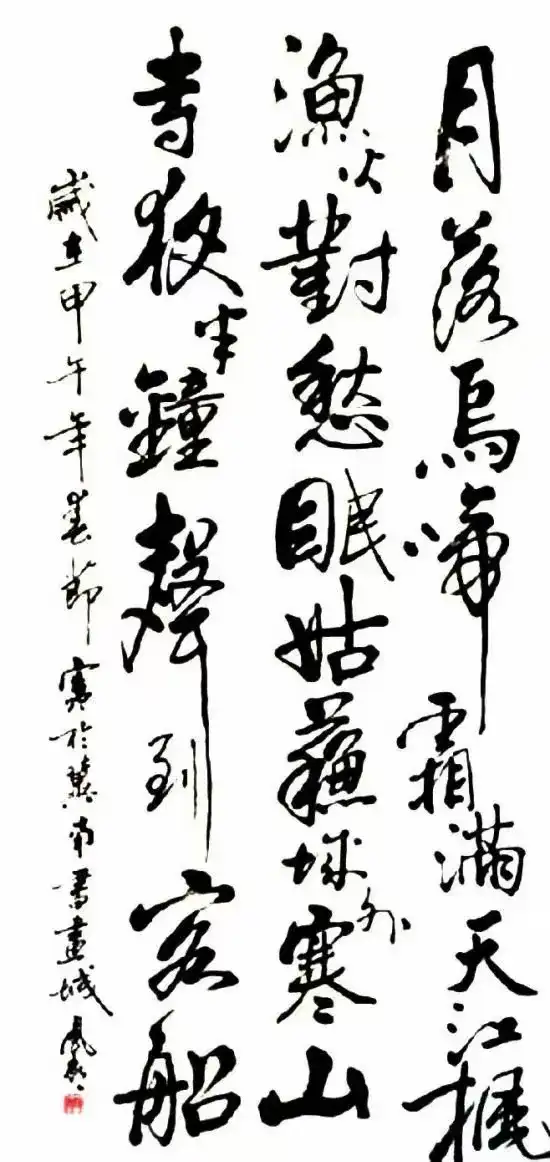 月落烏啼霜滿天江楓
漁火對愁眠姑蘇城外寒山
寺夜半鐘聲到客船
歲在甲午年春節寫於冀南書畫城